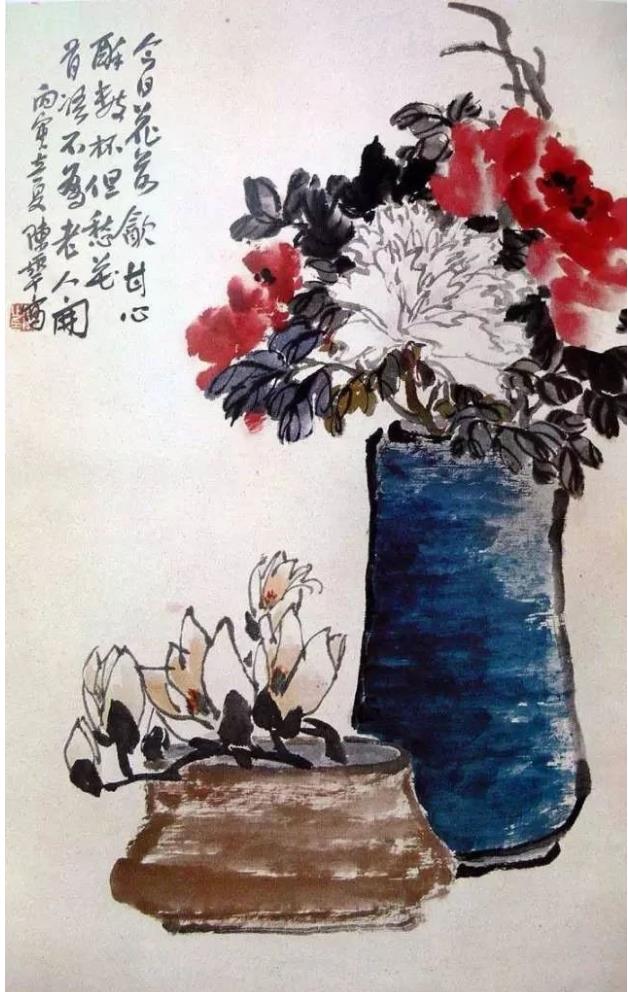 今日花前飲甘心
醉數杯但愁花
有語不為老人開
丙寅立夏陳